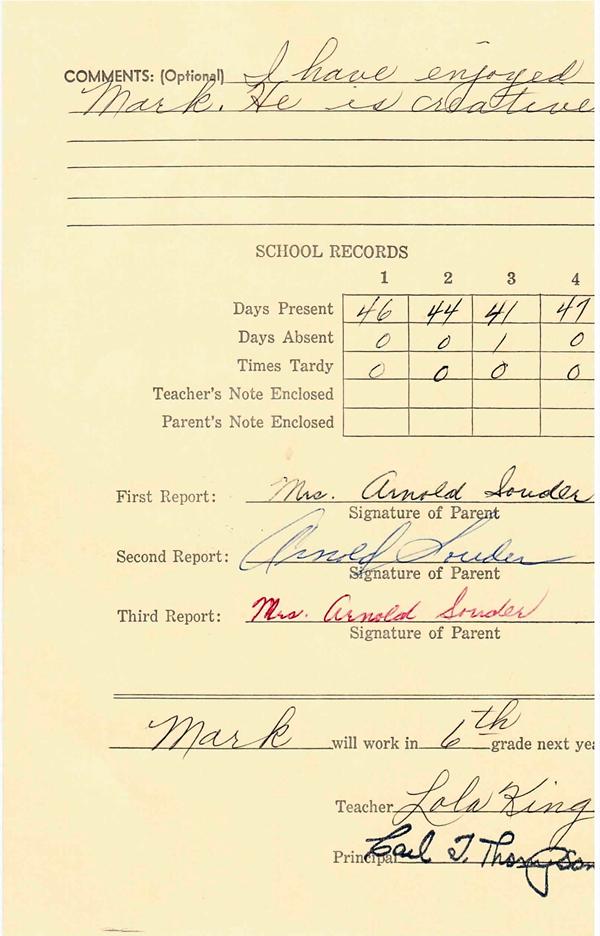 COMMENTS: (Optional) I have enjoyed
Mark. He is creative
SCHOOL RECORDS
1 2 3 4
Days Present 46 44 41 47
Days Absent 0 0 1 0
Times Tardy 0 0 0 0
Teacher's Note Enclosed
Parent's Note Enclosed
First Report: Mrs. Arnold Souder
Signature of Parent
Second Report: Arnold Souder
Signature of Parent
Third Report: Mrs. Arnold Souder
Signature of Parent
Mark will work in 6th grade next yea
Teacher Lola King
Principal Carl T. Thompson